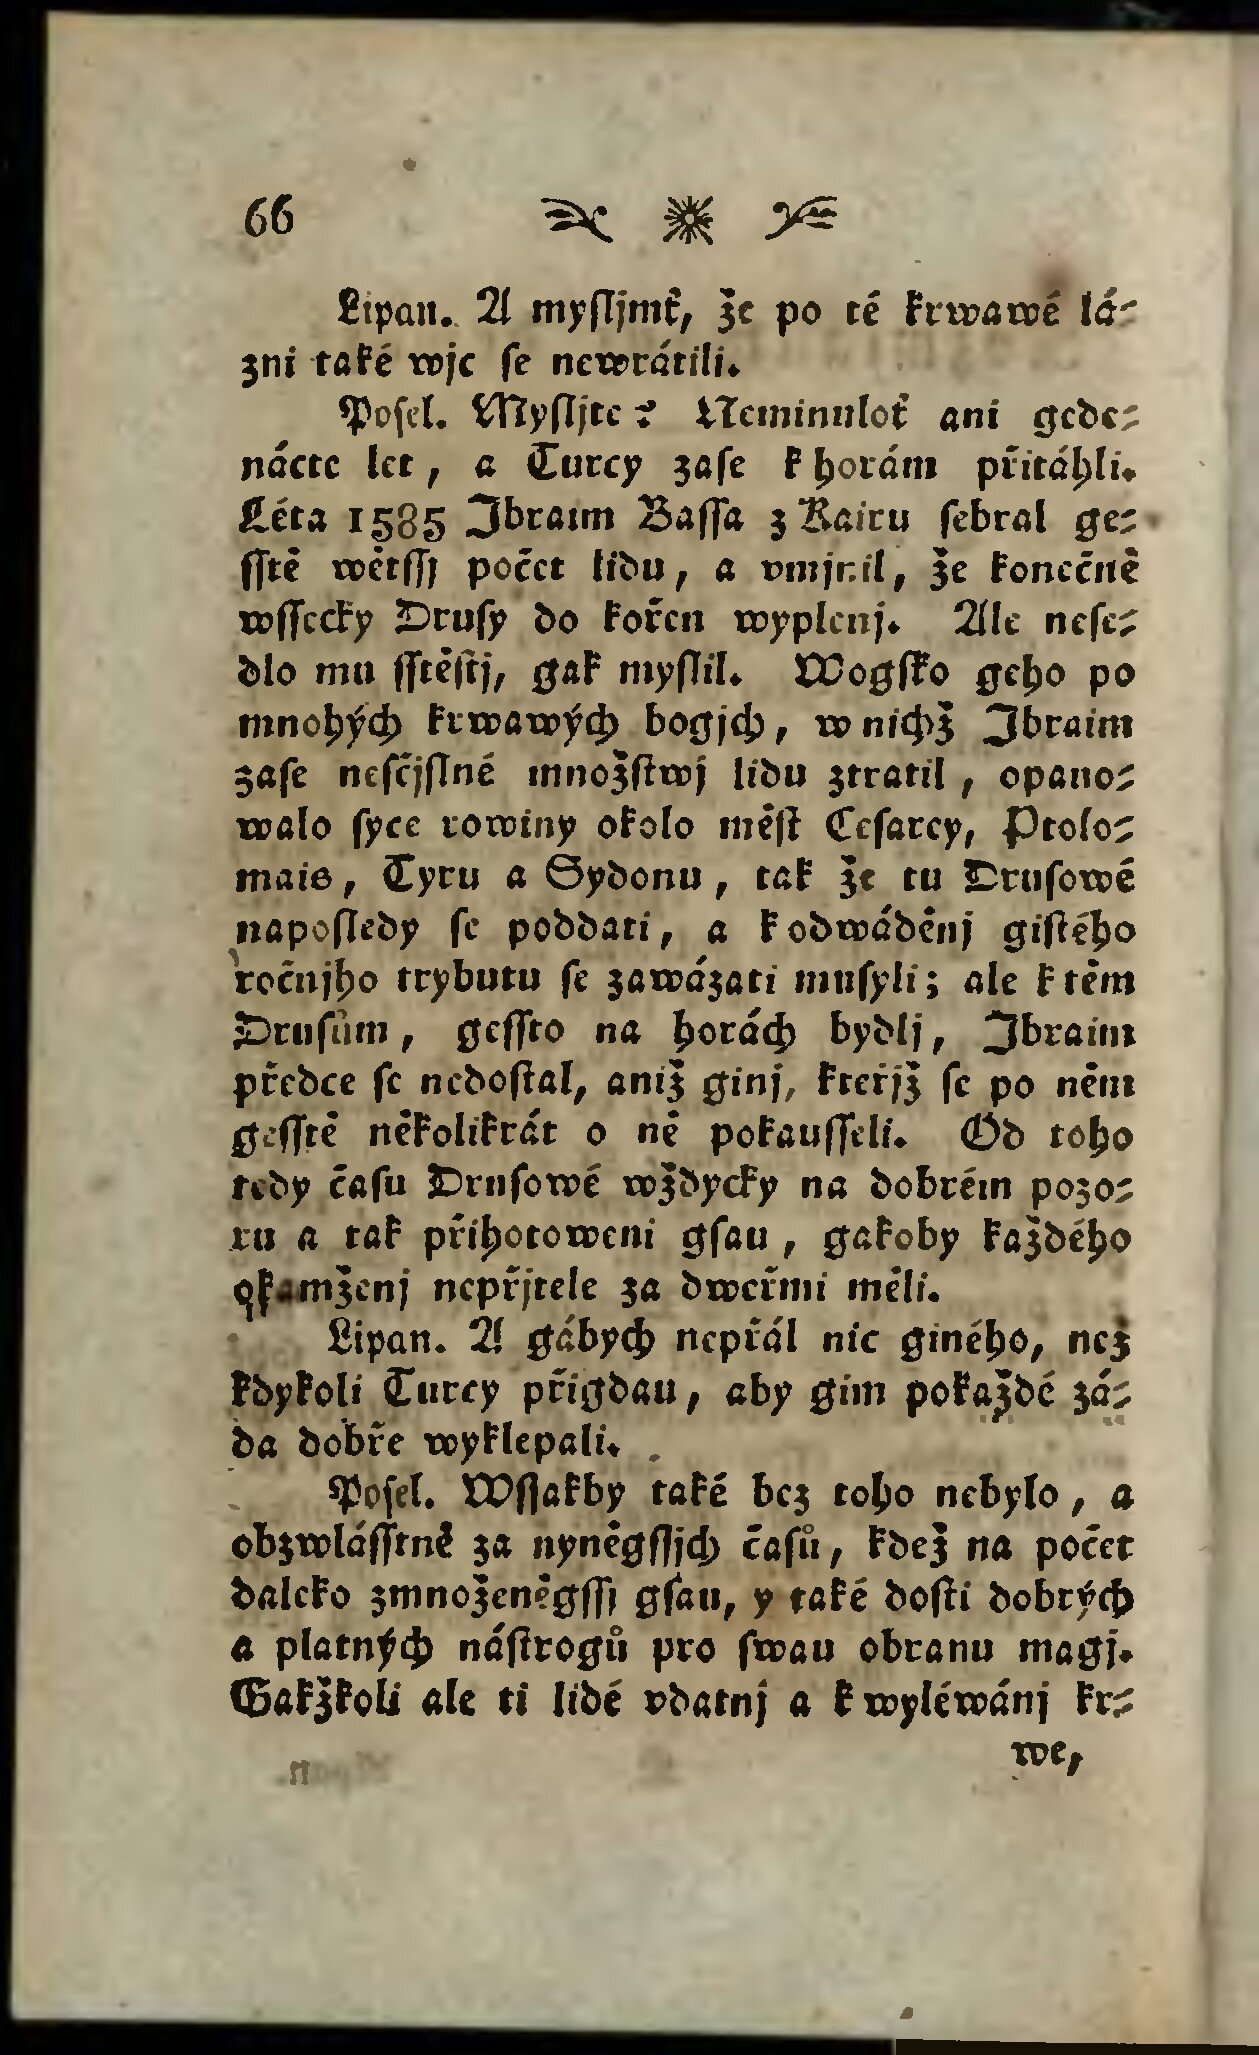 66
Lipan. A mysljmť, že po té krwawé lá-
zni také wjc se newrátili.
Posel. Mysljte? Neminuloť ani gede-
nácte let, a Turcy zase k horám přitáhli.
Léta 1585 Jbraim Bassa z Kairu sebral ge-
sstě wětssj počet lidu, a vmjnil, že konečně
wssecky Drusy do kořen wyplenj. Ale nese-
dlo mu sstěstj, gak myslil. Wogsko geho po
mnohých krwawých bogjch, w nichž Jbraim
zase nesčjslné množstwj lidu ztratil, opano-
walo syce rowiny okolo měst Cesarey, Ptolo-
mais, Tyru a Sydonu, tak že tu Drusowé
naposledy se poddati, a k odwáděnj gistého
ročnjho trybutu se zawázati musyli; ale k těm
Drusům, gessto na horách bydlj, Jbraim
předce se nedostal, aniž ginj, kteřjž se po něm
gesstě někikolikrát o ně pokausseli. Od toho
tedy času Drusowé wždycky na dobrém pozo-
ru a tak přihotoweni gsau, gakoby každého
okamženj nepřjtele za dweřmi měli.
Lipan. A gábych nepřál nic giného, než
kdykoli Turcy přigdau, aby gim pokaždé zá-
da dobře wyklepali.
Posel. Wssakby také bez toho nebylo, a
obzwlásstně za nyněgssjch časů, kdež na počet
daleko zmnoženěgssj gsau, y také dosti dobrých
a platných nástrogů pro swau obranu magj.
Gakžkoli ale ti lidé vdatnj a k wyléwánj kr-
we,